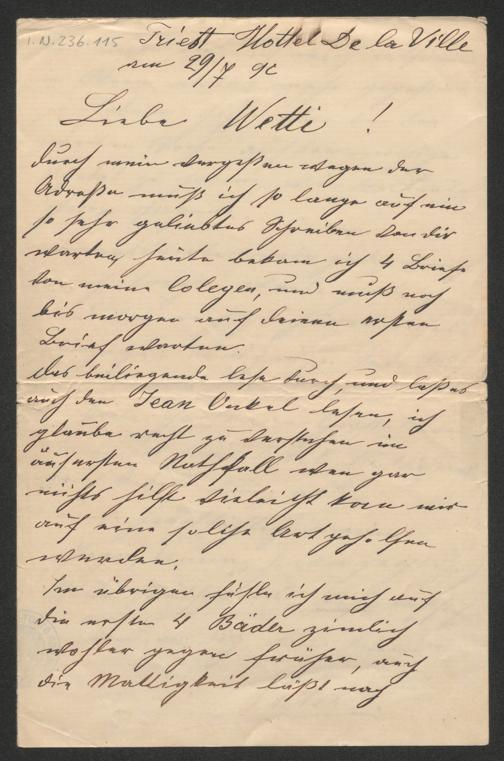 I.N. 236.115
Triest Hottel De la Ville
am 29/7 9c
Liebe Wetti !
durch mein vergeßen wegen der
Adreße muß ich so lange auf ein
so sehr geliebtes Schreiben von dir
warten, heute bekam ich 4 Briefe
von meine Colegen, und muß noch
bis morgen auf deinen ersten
Brief warten.
das beiliegende lese durch und laßes
auch den Jean Onkel lesen, ich
glaube recht zu verstehen im
äusersten Nothfall wen gar
nichts hilft vieleicht kan mir
auf eine solche Art geholfen
werden.
Im übrigen fühle ich mich auf
die ersten 4 Bäder zimlich
wohler gegen früher, auch
die Mattigkeit läßt nach